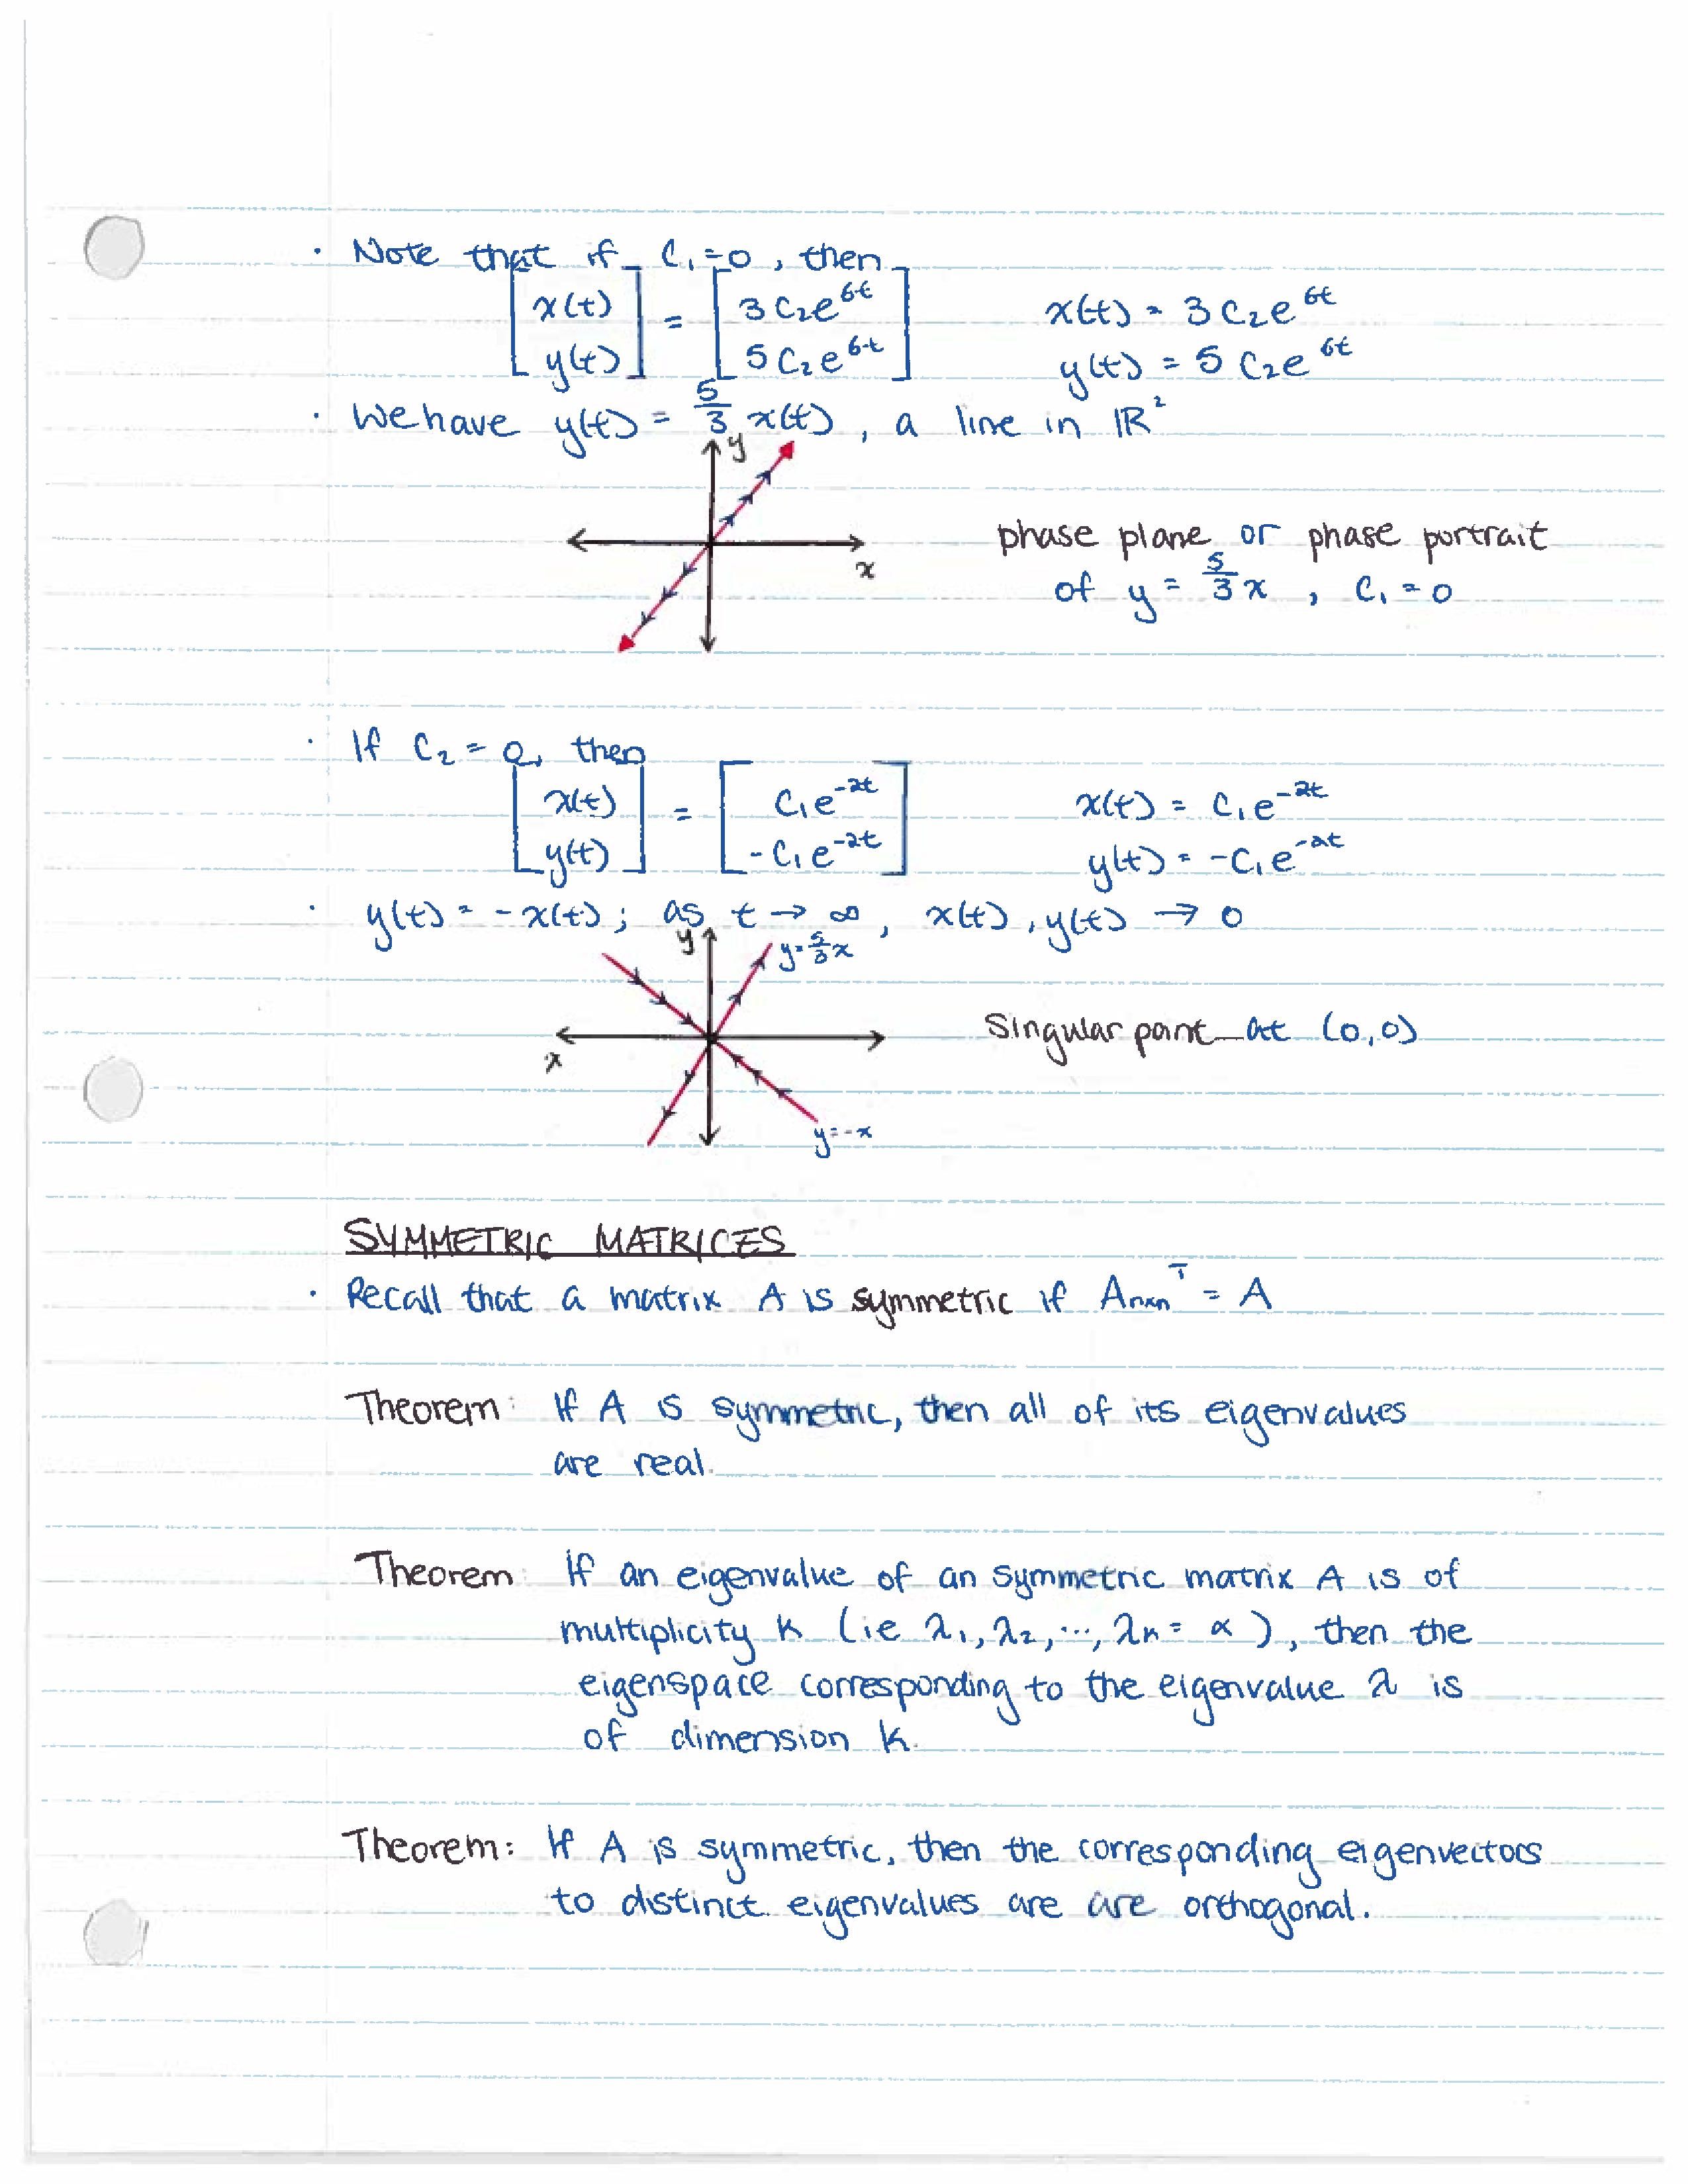 · Note that if C₁=0, then
[x(t) y(t)] = [3C₂e^{6t} 5C₂e^{6t}] x(t) = 3C₂e^{6t}
y(t) = 5C₂e^{6t}
· We have y(t) = 5/3 x(t), a line in ℝ²
y
x
phase plane or phase portrait
of y = 5/3 x, C₁ = 0
· If C₂ = 0, then
[x(t) y(t)] = [C₁e^{-2t} -C₁e^{-2t}] x(t) = C₁e^{-2t}
y(t) = -C₁e^{-2t}
· y(t) = -x(t); as t → ∞, x(t), y(t) → 0
y
y=5/3 x
Singular point at (0,0)
x
y=-x
SYMMETRIC MATRICES
· Recall that a matrix A is symmetric if Aₙₓₙᵀ = A
Theorem: If A is symmetric, then all of its eigenvalues
are real.
Theorem: If an eigenvalue of an symmetric matrix A is of
multiplicity k (ie λ₁, λ₂, ..., λₖ = α), then the
eigenspace corresponding to the eigenvalue λ is
of dimension k.
Theorem: If A is symmetric, then the corresponding eigenvectors
to distinct eigenvalues are are orthogonal.